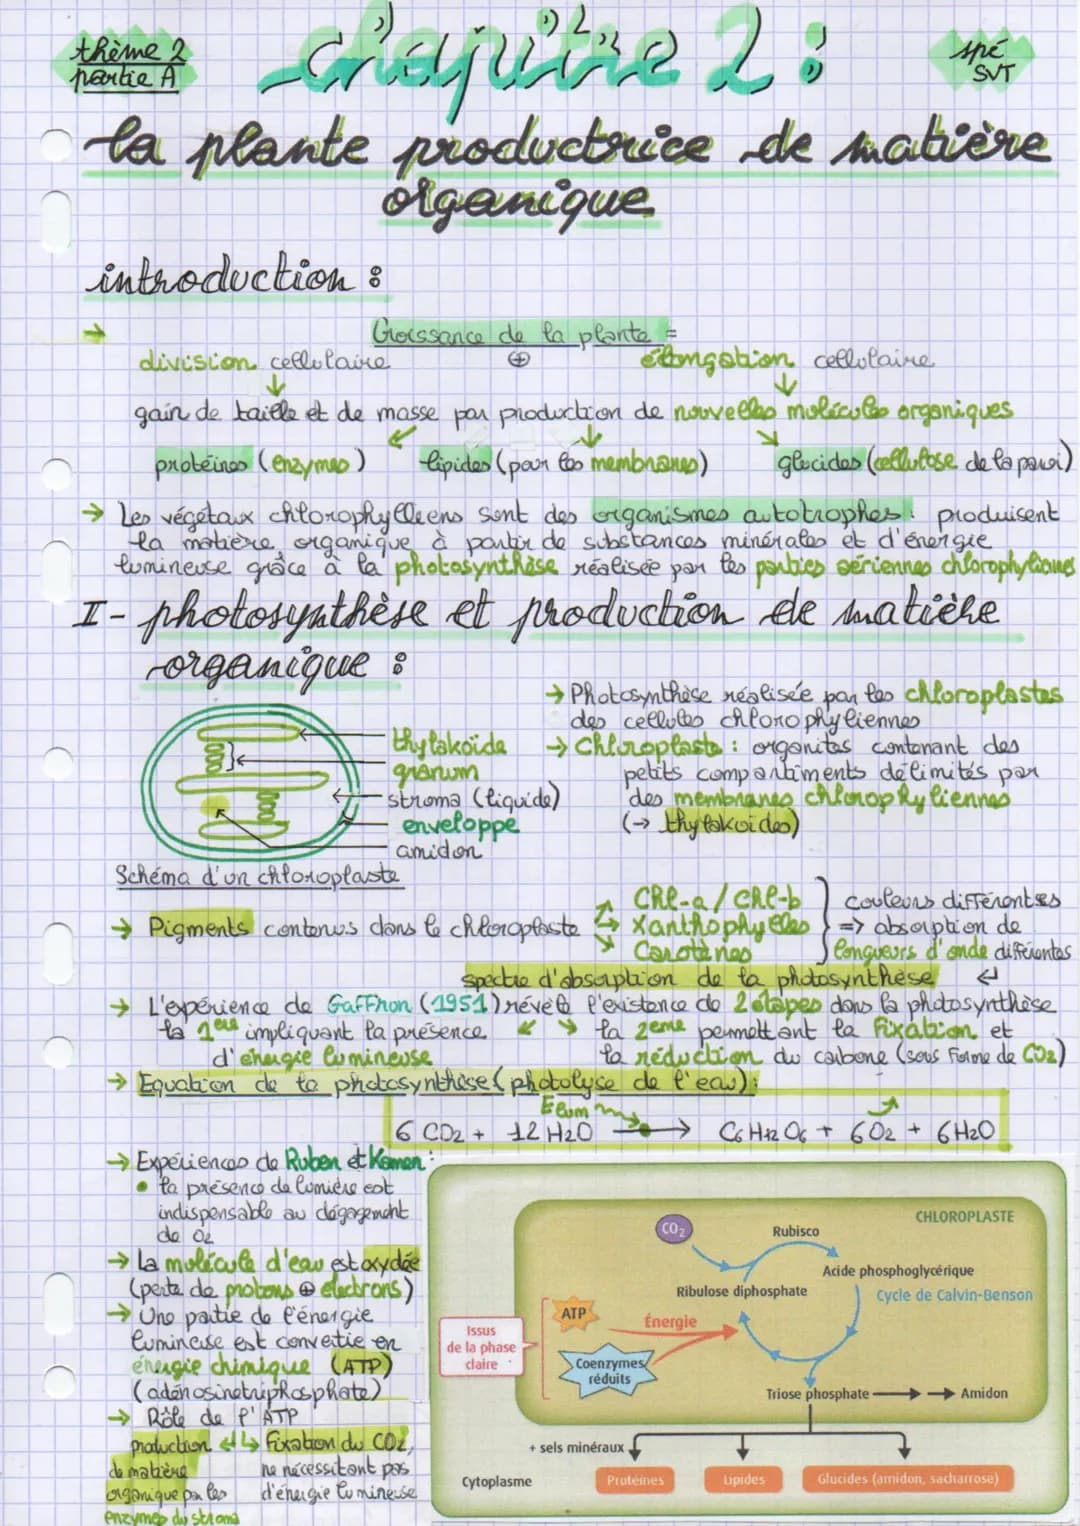 thème 2
partie A
chapitre 2 :
spé
SVT
la plante productrice de matière
organique
introduction :
→ Croissance de la plante =
division cellulaire ⊕ élongation cellulaire
gain de taille et de masse par production de nouvelles molécules organiques
protéines (enzymes) lipides (pour les membranes) glucides (cellulose de la paroi)
→ Les végétaux chlorophylleens sont des organismes autotrophes : produisent
la matière organique à partir de substances minérales et d'énergie
lumineuse grâce à la photosynthèse réalisée par les parties aériennes chlorophyliennes
I- photosynthèse et production de matière
organique :
thylakoïde
granum
stroma (liquide)
enveloppe
amidon
Schéma d'un chloroplaste
→ Photosynthèse réalisée par les chloroplastes
des cellules chlorophyliennes
→ Chloroplaste : organites contenant des
petits compartiments délimités par
des membranes chlorophyliennes
(→ thylakoïdes)
→ Pigments contenus dans le chloroplaste
Chl-a / Chl-b
Xanthophylles
Carotènes
couleurs différentes
=> absorption de
longueurs d'onde différentes
spectre d'absorption de la photosynthèse
→ L'expérience de Gaffron (1951) révèle l'existence de 2 étapes dans la photosynthèse
la 1ère impliquant la présence
d'énergie lumineuse
la 2ème permettant la fixation et
la réduction du carbone (sous forme de CO2)
→ Equation de la photosynthèse (photolyse de l'eau) :
Elum
6 CO2 + 12 H2O → C6H12O6 + 6O2 + 6H2O
→ Expériences de Ruben et Kamen :
• la présence de lumière est
indispensable au dégagement
de O2
→ La molécule d'eau est oxydée
(perte de protons ⊕ électrons)
→ Une partie de l'énergie
lumineuse est convertie en
énergie chimique (ATP)
(adénosinetriphosphate)
→ Rôle de l'ATP
production
de matière
organique par les
enzymes du stroma
Fixation du CO2,
ne nécessitant pas
d'énergie lumineuse
CHLOROPLASTE
CO2
Rubisco
Acide phosphoglycérique
Ribulose diphosphate
Cycle de Calvin-Benson
ATP
Énergie
Issus
de la phase
claire
Coenzymes
réduits
Triose phosphate → → Amidon
+ sels minéraux
Cytoplasme
Protéines
Lipides
Glucides (amidon, sacharrose)